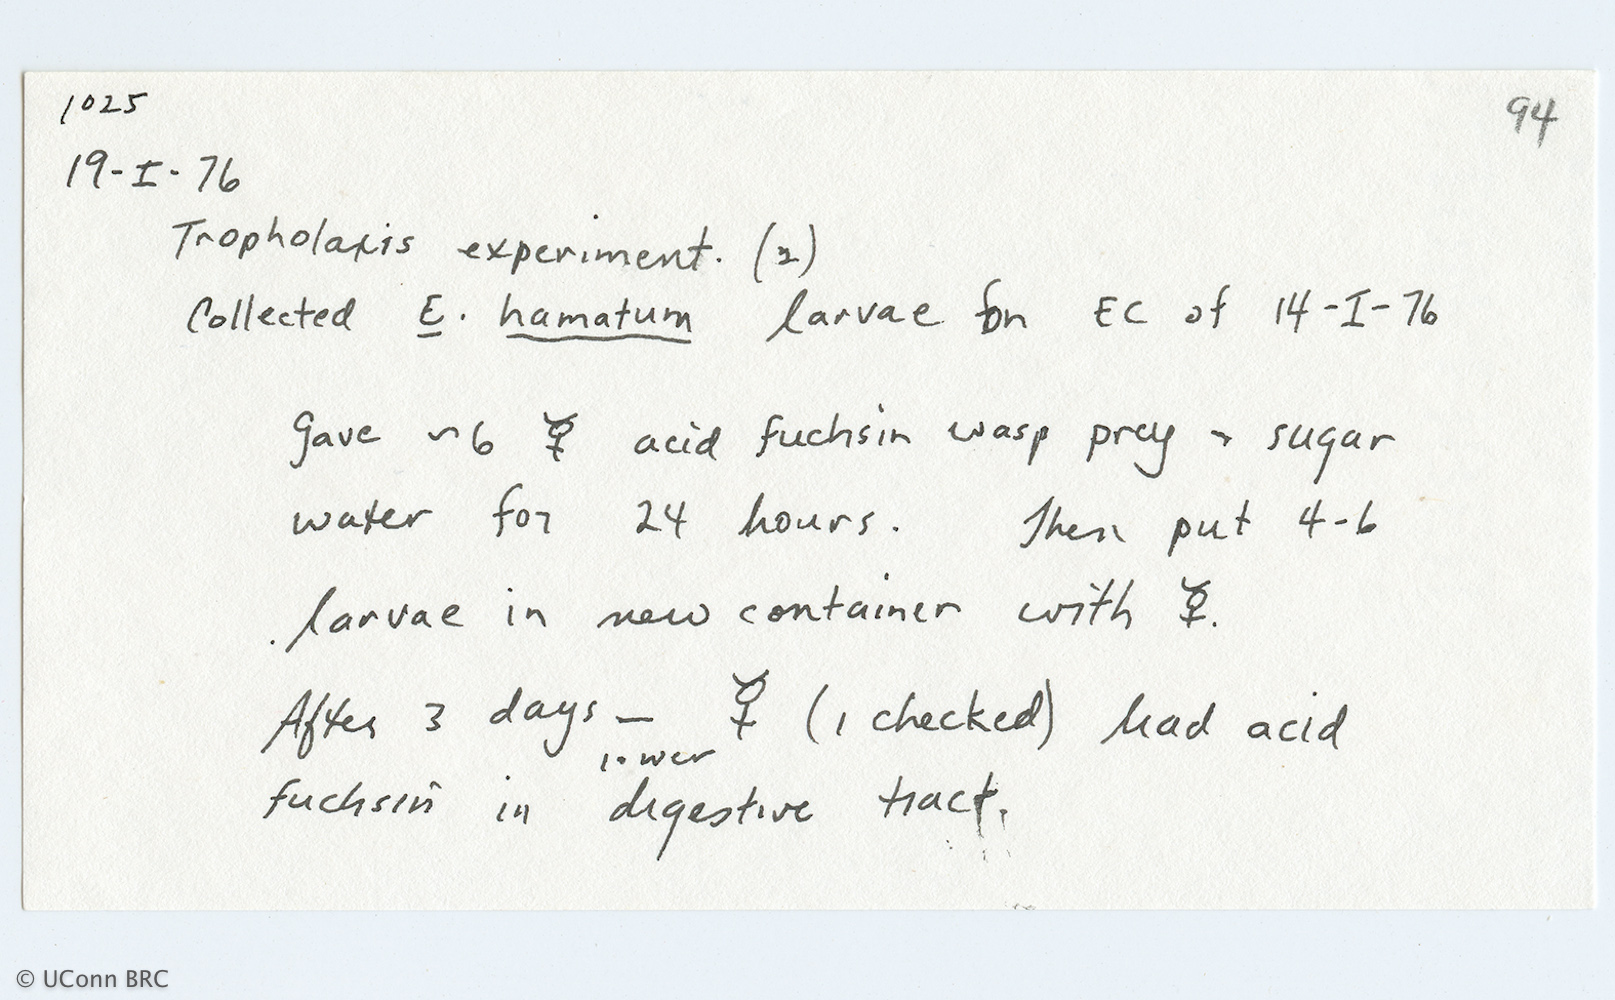 1025
94
19-I-76
Tropholaxis experiment. (2)
Collected E. hamatum larvae fm EC of 14-I-76
Gave ~6 ☿ acid fuchsin wasp prey + sugar
water for 24 hours. Then put 4-6
larvae in new container with ☿.
After 3 days — ☿ (1 checked) had acid
lower
fuchsin in digestive tract.
© UConn BRC